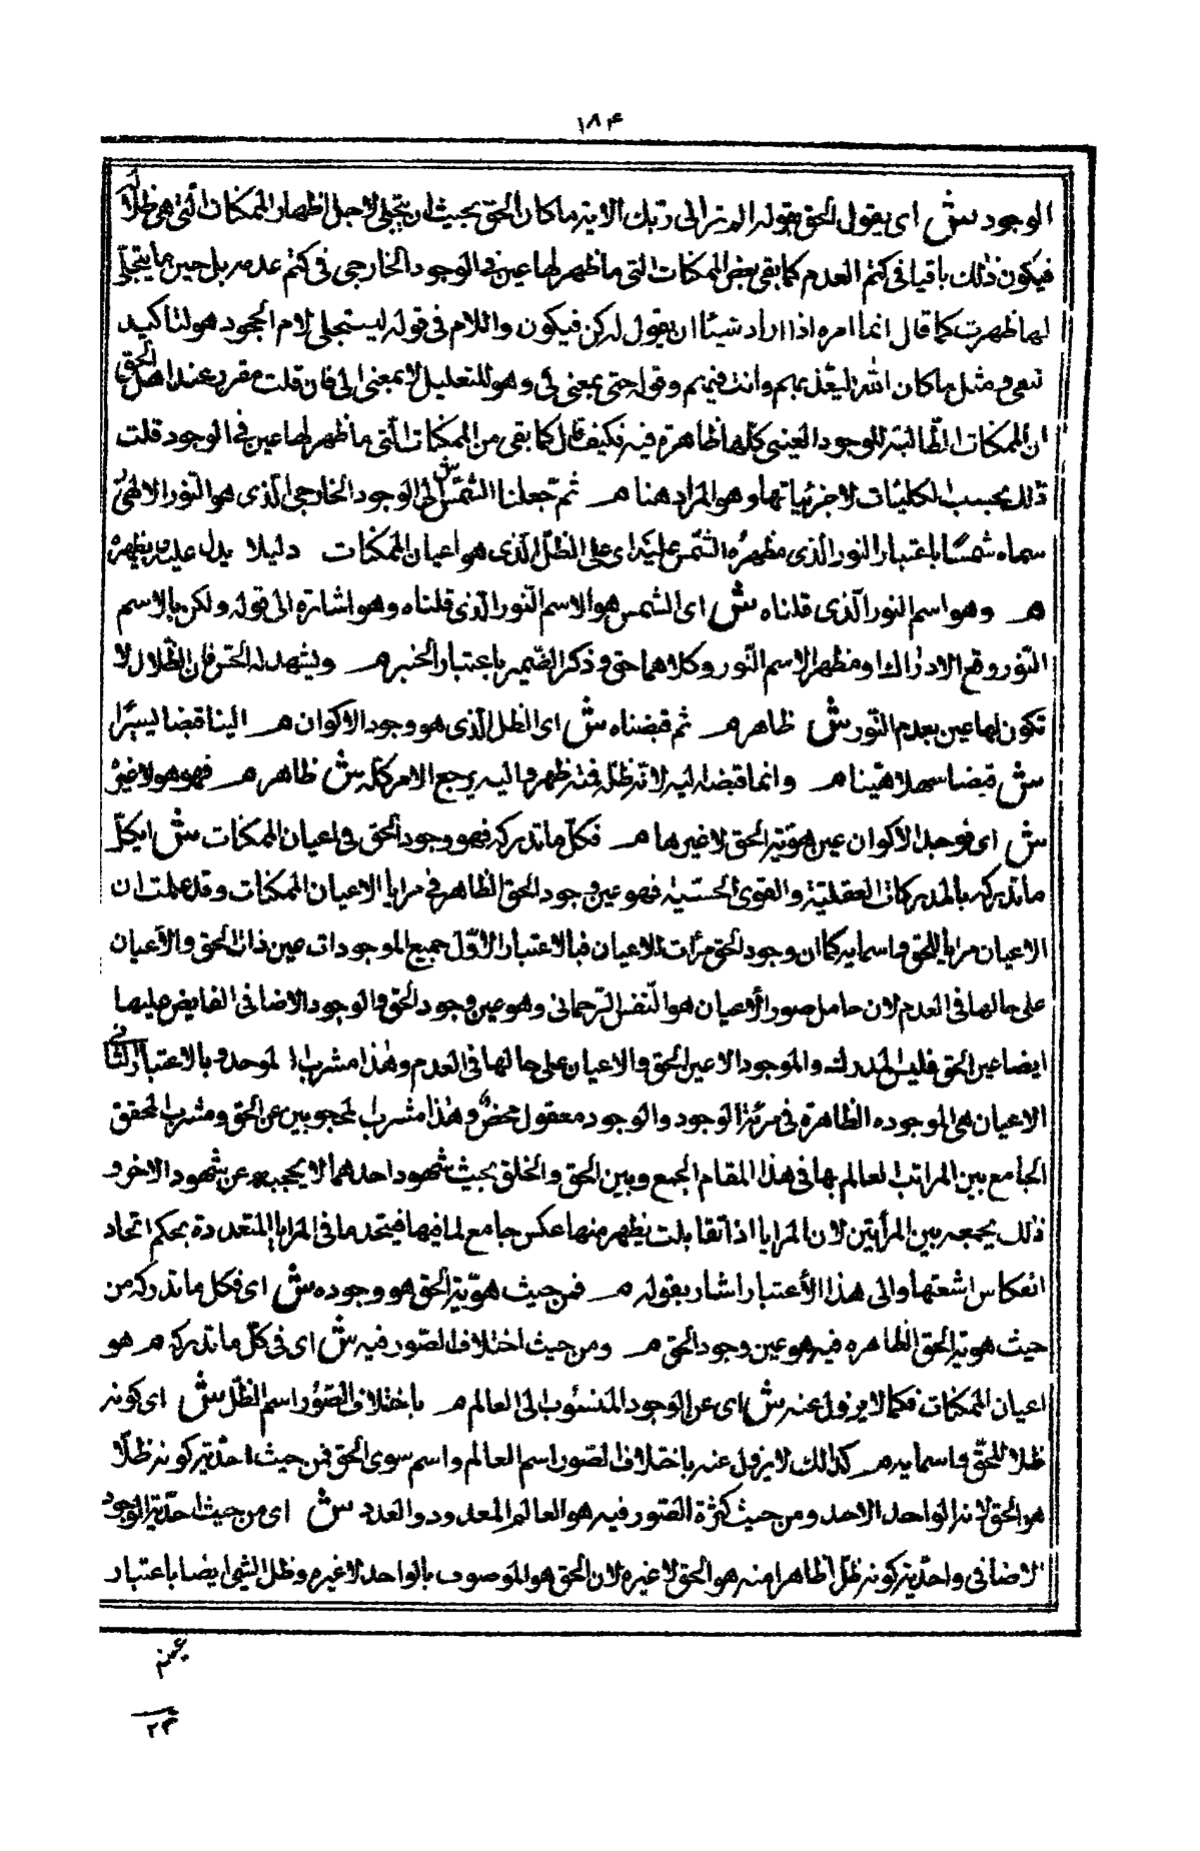 ١٨۴
الوجود ش اى يقول الحق بقوله الم تر الى ربك الاية ما كان الحق بحيث ان يتجلى لاجل اظهار الممكنات التى هى ظلاله
فيكون ذلك باقيا فى كتم العدم كما بقى بعض الممكنات التى ما ظهر لها عين فى الوجود الخارجى فى كتم عدمه بل حين ما يتجلى
لها ظهرت كما قال انما امره اذا اراد شيئا ان يقول له كن فيكون واللام فى قوله ليتجلى لام الجحود هو لتاكيد
نفى ومثل ما كان الله ليعذبهم وانت فيهم وقوله حتى بمعنى كى وهو للتعليل لا بمعنى الى فان قلت مقرر عند اهل الحق
ان الممكنات الطالبة للوجود العينى كلها ظاهرة فيه فكيف قال كما بقى من الممكنات التى ما ظهر لها عين فى الوجود قلت
ذلك بحسب الكليات لا جزئياتها وهو المراد هنا م ثم جعلنا الشمس ش اى الوجود الخارجى الذى هو النور الالهى
سماه شمسا باعتبار النور الذى مظهره الشمس عليه اى على الظل الذى هو اعيان الممكنات دليلا يدل عليه ويظهره
م وهو اسم النور الذى قلناه ش اى الشمس هو الاسم النور الذى قلناه وهو اشارة الى قوله ولكن بالاسم
النور وقع الادراك او مظهر الاسم النور وكلاهما حق وذكر الضمير باعتبار الخبر م ويشهد له الحس فان الظلال لا
تكون لها عين بعدم النور ش ظاهر م ثم قبضناه ش اى الظل الذى هو وجود الاكوان م الينا قبضا يسيرا
ش قبضا سهلا هينا م وانما قبضه اليه لانه ظله فمنه ظهر واليه يرجع الامر كله ش ظاهر م فهو هو لا غيره
ش اى فوجود الاكوان عين هوية الحق لا غيرها م فكل ما تدركه فهو وجود الحق فى اعيان الممكنات ش اى كل
ما تدركه بالمدركات العقلية والقوى الحسية فهو عين وجود الحق الظاهر فى مرايا الاعيان الممكنات وقد علمت ان
الاعيان مرايا للحق واسمايه كما ان وجود الحق مرآت للاعيان فبالاعتبار الاول جميع الموجودات عين ذات الحق والاعيان
على حالها فى العدم لان حامل صور الاعيان هو النفس الرحمانى وهو عين وجود الحق والوجود الاضافى الفايض عليها
ايضا عين الحق فليس المدرك والموجود الا عين الحق والاعيان على حالها فى العدم وهذا مشرب الموحد وبالاعتبار الثانى
الاعيان هى الموجوده الظاهرة فى مرآة الوجود والوجود معقول محض وهذا مشرب المحجوبين عن الحق ومشرب المحقق
الجامع بين المراتب العالم بها فى هذا المقام الجمع وبين الحق والخلق بحيث شهود احدهما لا يحجبه عن شهود الاخر و
ذلك بجمعه بين المرأتين لان المرايا اذا تقابلت يظهر منها عكس جامع لما فيها فيتحد ما فى المرايا المتعددة بحكم اتحاد
انعكاس اشعتها والى هذا الاعتبار اشار بقوله م فمن حيث هوية الحق هو وجوده ش اى فكل ما تدركه من
حيث هوية الحق الظاهره فيه هو عين وجود الحق م ومن حيث اختلاف الصور فيه ش اى فى كل ما تدركه م هو
اعيان الممكنات فكما لا يزول عنه ش اى عن الوجود المنسوب الى العالم م باختلاف الصور اسم الظل ش اى كونه
ظلا للحق واسمايه م كذلك لا يزول عنه باختلاف الصور اسم العالم واسم سوى الحق فمن حيث احدية كونه ظلا
هو الحق لانه الواحد الاحد ومن حيث كثرة الصور فيه هو العالم المعدود والعدد ش اى من حيث احدية الوجود
الاضافى واحدية كونه ظلا ظاهرا منه هو الحق لا غيره لان الحق هو الموصوف بالواحد لا غيره وظل الشئ ايضا باعتبار
عينه
٢٣